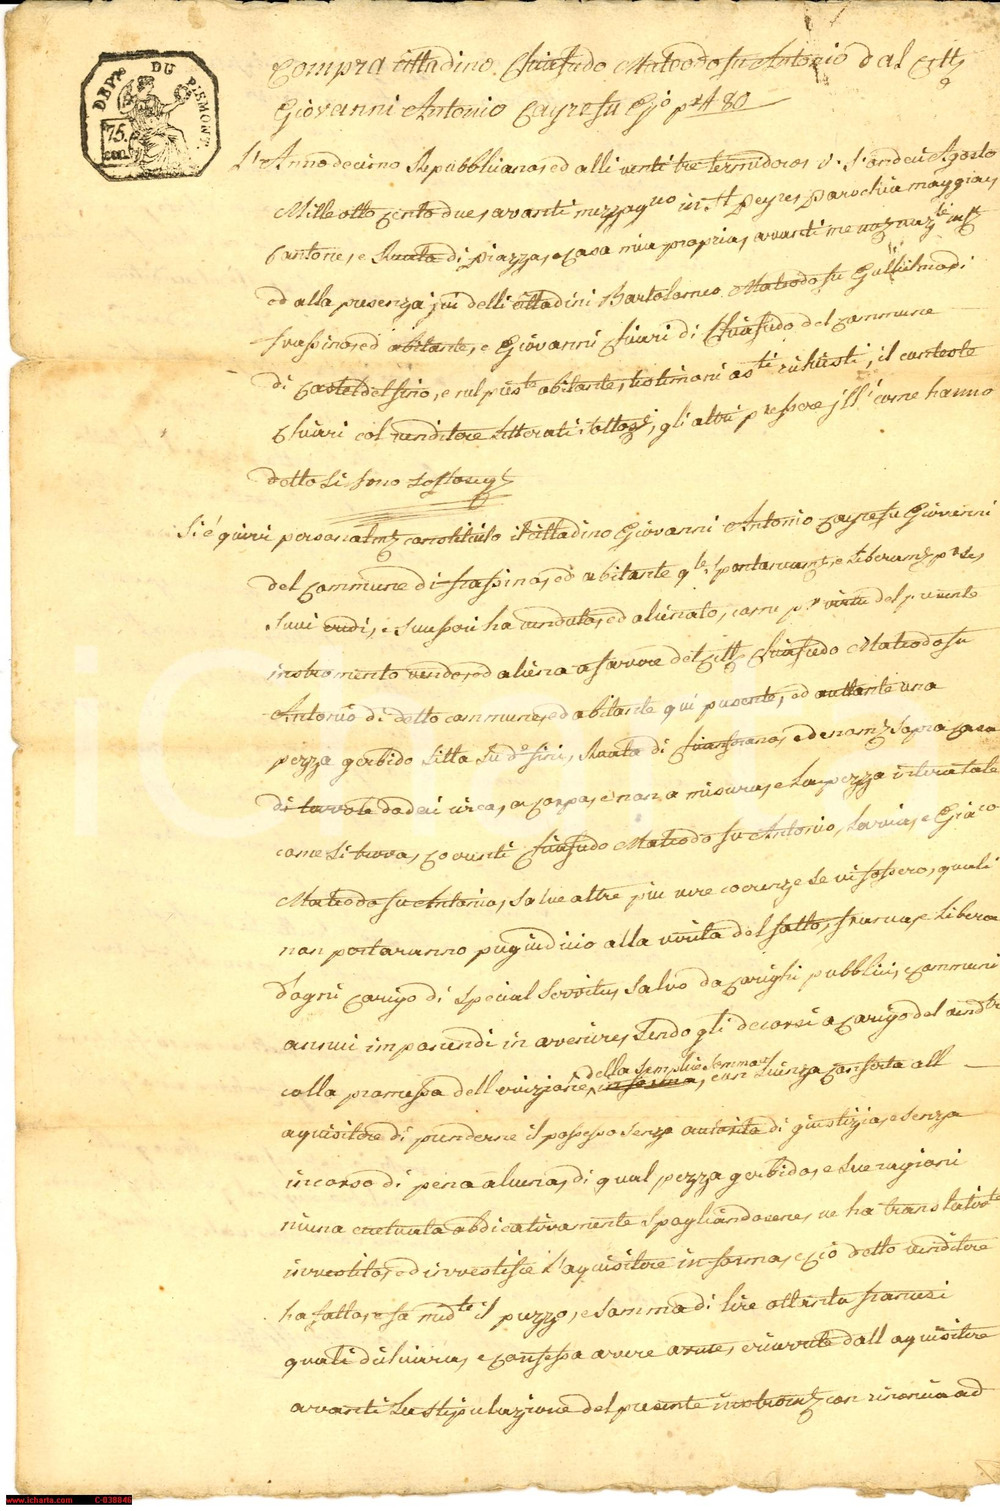 DEP.te DU PIEMONT.
75. cen.
Compra cittadino Chiafredo Mateodo fu Antonio dal Citt.
Giovanni Antonio Cayre fu Gio p. # 80
L'Anno decimo Repubblicano, ed alli venti tre termidoro, v. s. ondeci Agosto
Mille otto cento due, avanti mezzagno in St Peyre, Parochia maggiore,
Cantone, e Ruata di Piazza, e casa mia propria, avanti me
ed alla presenza, più delli cittadini Bartolomeo Mateodo fu Gullielmo, di
frassino, ed abitante, e Giovanni Chiari di Chiafredo del commune
di Casteldelfino, e sul pnte abitante, testimoni asti richiesti, il conteste
Chiari col venditore litterati, gli altri p essere ill'i come hanno
detto si sono sottosegti
Si è quivi personalmte constituito il cittadino Giovanni Antonio Cayre fu Giovanni
del commune di frassino, ed abitante qle spontaneamte, e liberamte p se,
suoi eredi, e sucessori ha venduto, ed alienato, come p virtù del presente
instromento vende, ed aliena a favore del citt. Chiafredo Mateodo fu
Antonio di detto commune, ed abitante qui presente, ed accettante una
pezza gerbido sitta su d.e fini, Ruata di, e denom.ta sopra casa
di tavole dodeci circa, a corpo, e non a misura, e la pezza intera tale
come si trova, coerenti Chiafredo Mateodo fu Antonio, la via, e Giaco
Mateodo fu Antonio, salve altre più vere coerenze se vi fossero, quali
non portaranno pregiudicio alla verità del fatto, franca, e libera
d'ogni carigo di special servitù, salvo da carighi pubblici, e communi
annui imponendi in avenire, sendo gli decorsi a carigo del vendre
colla promessa dell evizione, della semplice somma, in forma, con licenza conferta all
aquisitore di prenderne il possesso senza autorità di giustizia, e senza
incorso di pena alcuna, di qual pezza gerbido, e sue ragioni
niuna eccetuata abdicativamente spogliandosene, ne ha translativte
investito, ed investisce l'aquisitore in forma, e ciò detto venditore
ha fatto, e fa medte il prezzo, e somma di lire ottanta francesi
quali dichiara, e confessa avere avute, e ricevute dall aquisitore
avanti la stipulazione del presente instromto con rinoncia ad
www.lcharta.com C-038846